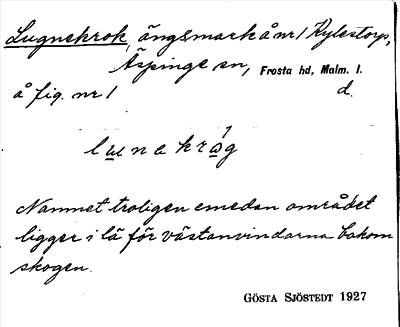 Lugnekrok, ängsmark å nr 1 Rylestorp,
Äspinge sn, Frosta hd, Malm. l.
å fig. nr 1 d.
Namnet troligen emedan området
ligger i lä för västanvindarna bakom
skogen.
GÖSTA SJÖSTEDT 1927